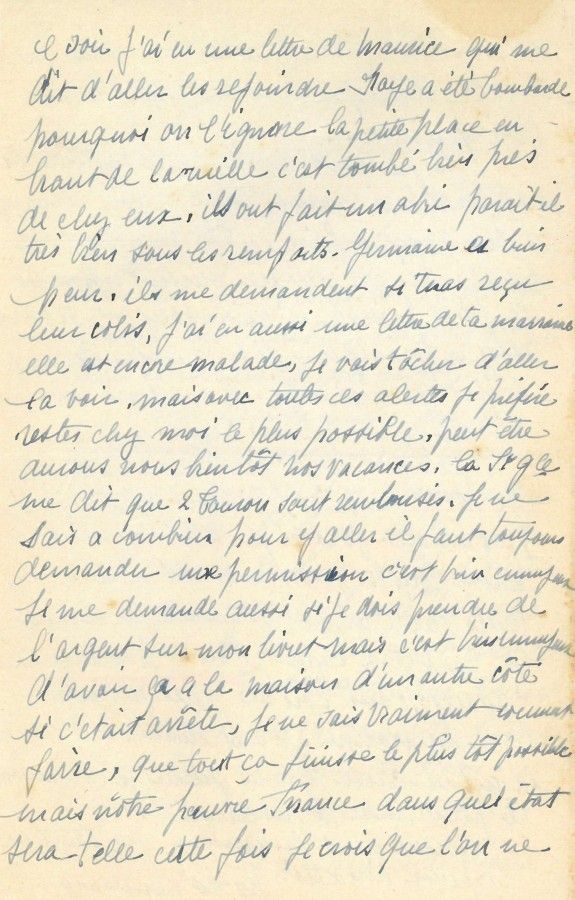 soir j'ai eu une lettre de Maurice qui me
dit d'aller les rejoindre Haye a été bombardé
pourquoi on l'ignore la petite place en
haut de la ruelle c'est tombé bien près
de chez eux, ils ont fait un abri parait il
très bien sous les remparts. Germaine a bien
peur, ils me demandent si tu as reçu
leur colis, j'ai eu aussi une lettre de ta marraine
elle est encore malade, je vais tâcher d'aller
la voir, mais avec toutes ces alertes je préfère
rester chez moi le plus possible, peut être
aurons nous bientôt nos vacances. la Ste
me dit que 2 sont remboursés. Je ne
sais a combien pour y aller il faut toujours
demander une permission c'est bien ennuyeux
Je me demande aussi si je dois prendre de
l'argent sur mon livret mais c'est bien ennuyeux
d'avoir ça a la maison d'un autre côté
si c'était arrêté, je ne sais vraiment comment
faire, que tout ça finisse le plus tôt possible
mais nôtre pauvre France dans quel état
sera-t elle cette fois je crois que l'on ne